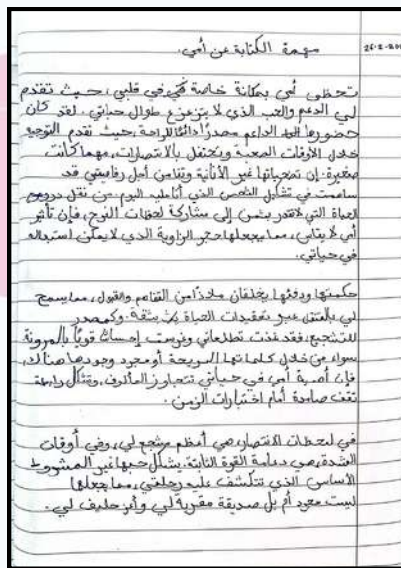 26-2-20
مهمة الكتابة عن أمي.
تحظى أمي بمكانة خاصة في قلبي، حيث تقدم
لي الدعم والحب الذي لا يتزعزع طوال حياتي. لقد كان
حضورها الداعم مصدرًا دائمًا للراحة، حيث تقدم التوجيه
خلال الأوقات الصعبة وتحتفل بالانتصارات، مهما كانت
صغيرة. إن تضحياتها غير الأنانية وتفاني من أجل رفاهيتي قد
ساهمت في تشكيل الشخص الذي أنا عليه اليوم. من نقل دروس
الحياة التي لا تقدر بثمن إلى مشاركة لحظات الفرح، فإن تأثير
أمي لا يقاس، مما يجعلها حجر الزاوية الذي لا يمكن استبداله
في حياتي.
حكمتها ودفئها يخلقان ملاذًا من التفاهم والقبول، مما يسمح
لي بالتنقل عبر تعقيدات الحياة بثقة. وكمصدر
للتشجيع، فقد غذت تطلعاتي وغرست إحساسًا قويًا بالمرونة
سواء من خلال كلماتها المريحة أو مجرد وجودها هناك،
فإن أهمية أمي في حياتي تتجاوز المألوف، وتشكل رابطة
تقف صامدة أمام اختبارات الزمن.
في لحظات الانتصار، هي أعظم مشجع لي، وفي أوقات
الشدة، هي دعامة القوة الثابتة. يشكل حبها غير المشروط
الأساس الذي تتكشف عليه رحلتي، مما يجعلها
ليست مجرد أم بل صديقة مقربة لي وأعز حليف لي.